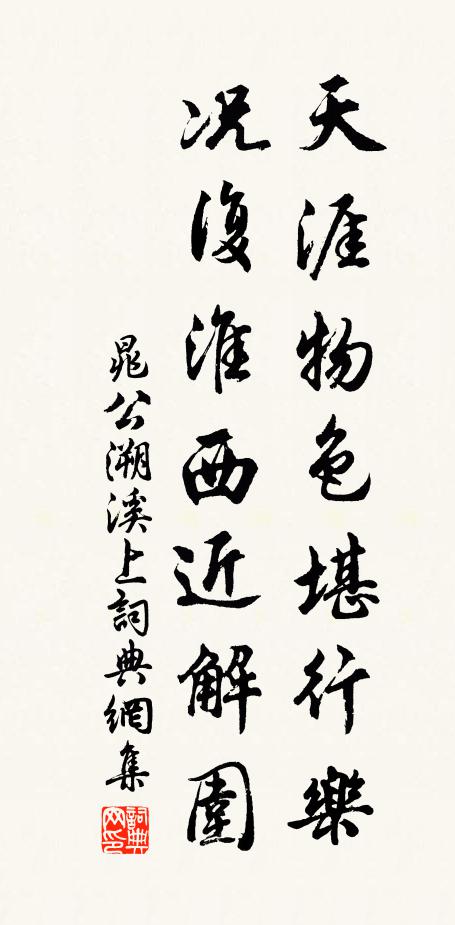 天涯物色堪行樂
况復淮西近解圍
晁公溯溪上詞典網集
詞典網印